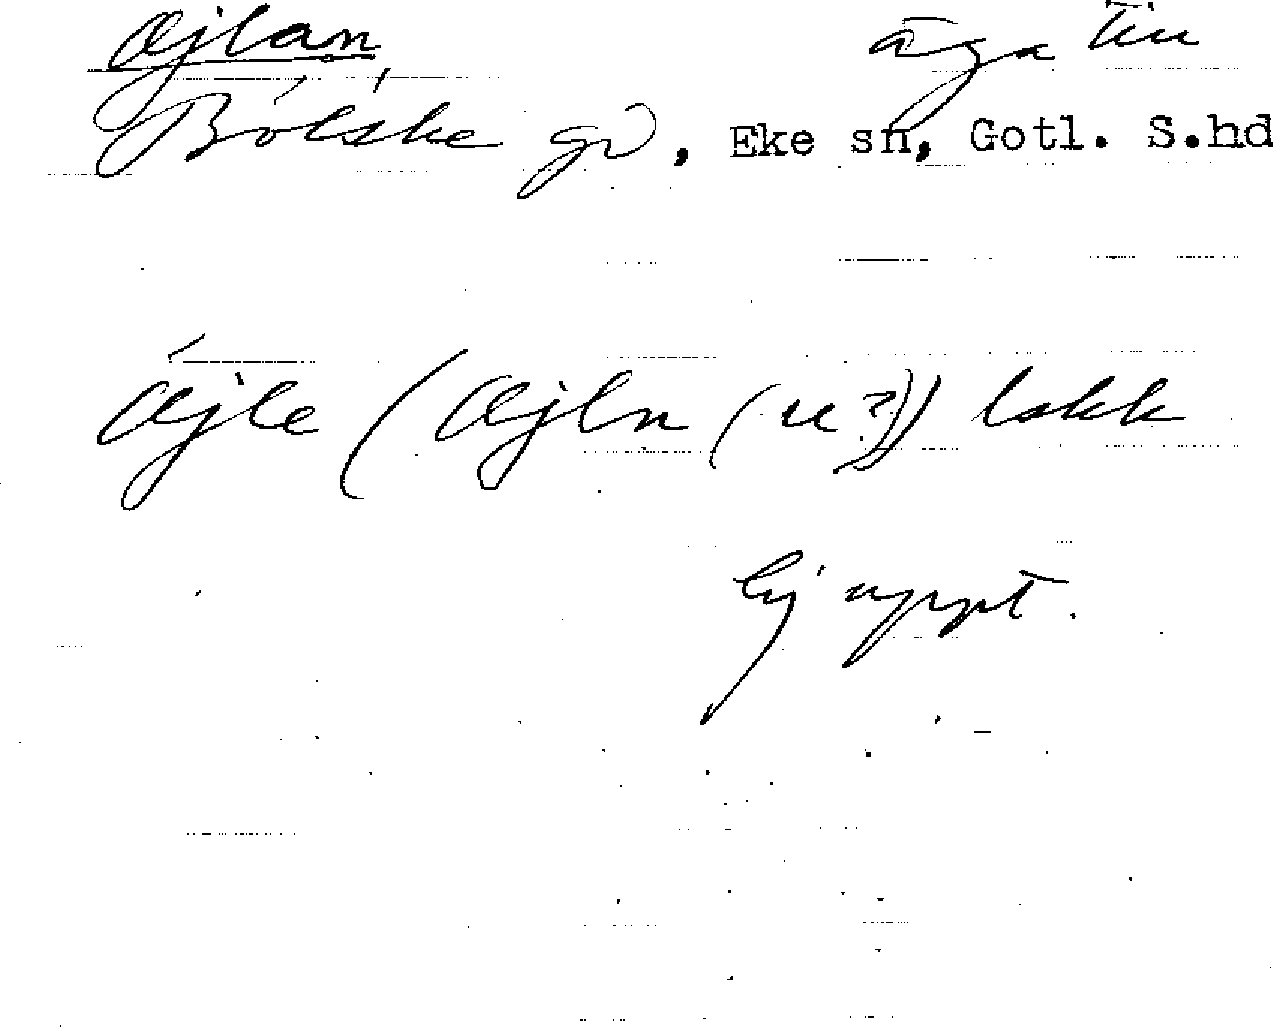 Ojlan āga tiu
Bólske gd, Eke sn, Gotl. S.hd
Ojle (Ojln (u?)) lokk
Ej uppt.